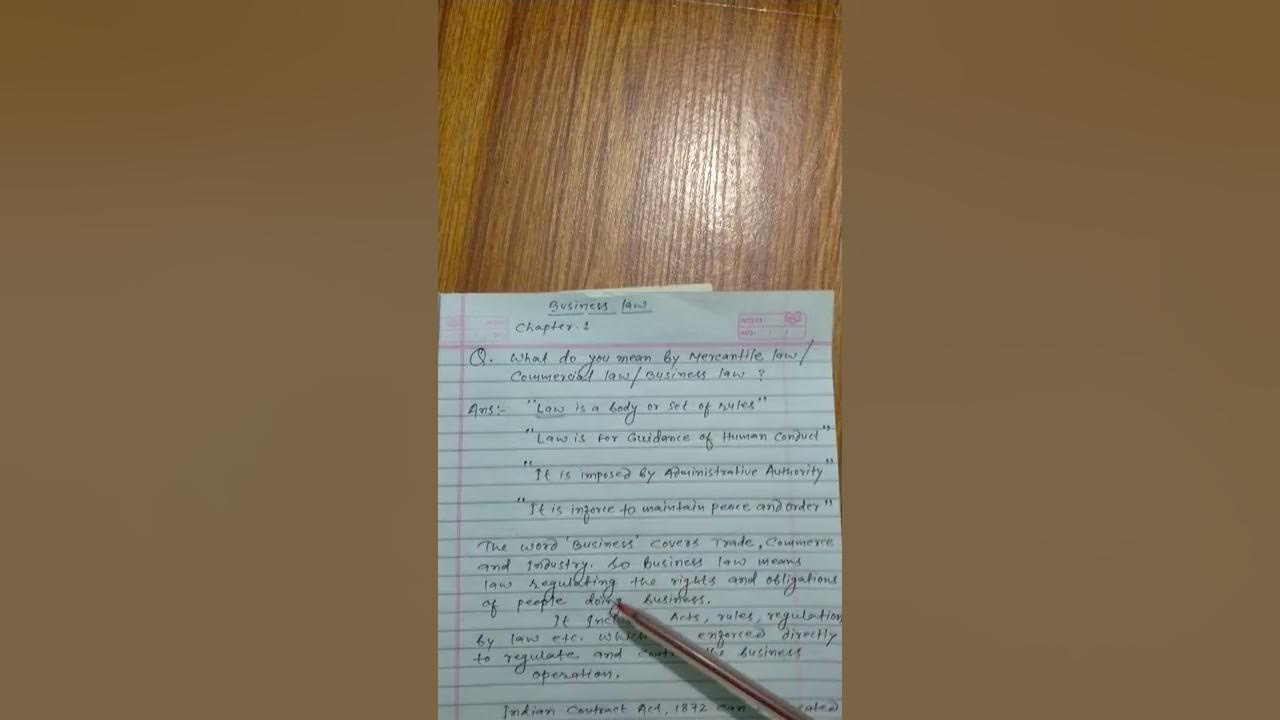 Business law
Chapter-1
Q. What do you mean by Mercantile law/
Commercial law/Business law ?
Ans:- "Law is a body or set of rules"
"Law is for Guidance of Human Conduct"
"It is imposed by Administrative Authority"
"It is inforce to maintain peace and order"
The word 'Business' covers Trade, Commerce
and Industry. So Business law means
law regulating the rights and obligations
of people doing business.
It Acts, rules, regulation
by law etc. enforced directly
to regulate and the business
operation.
Indian Contract Act, 1872 can